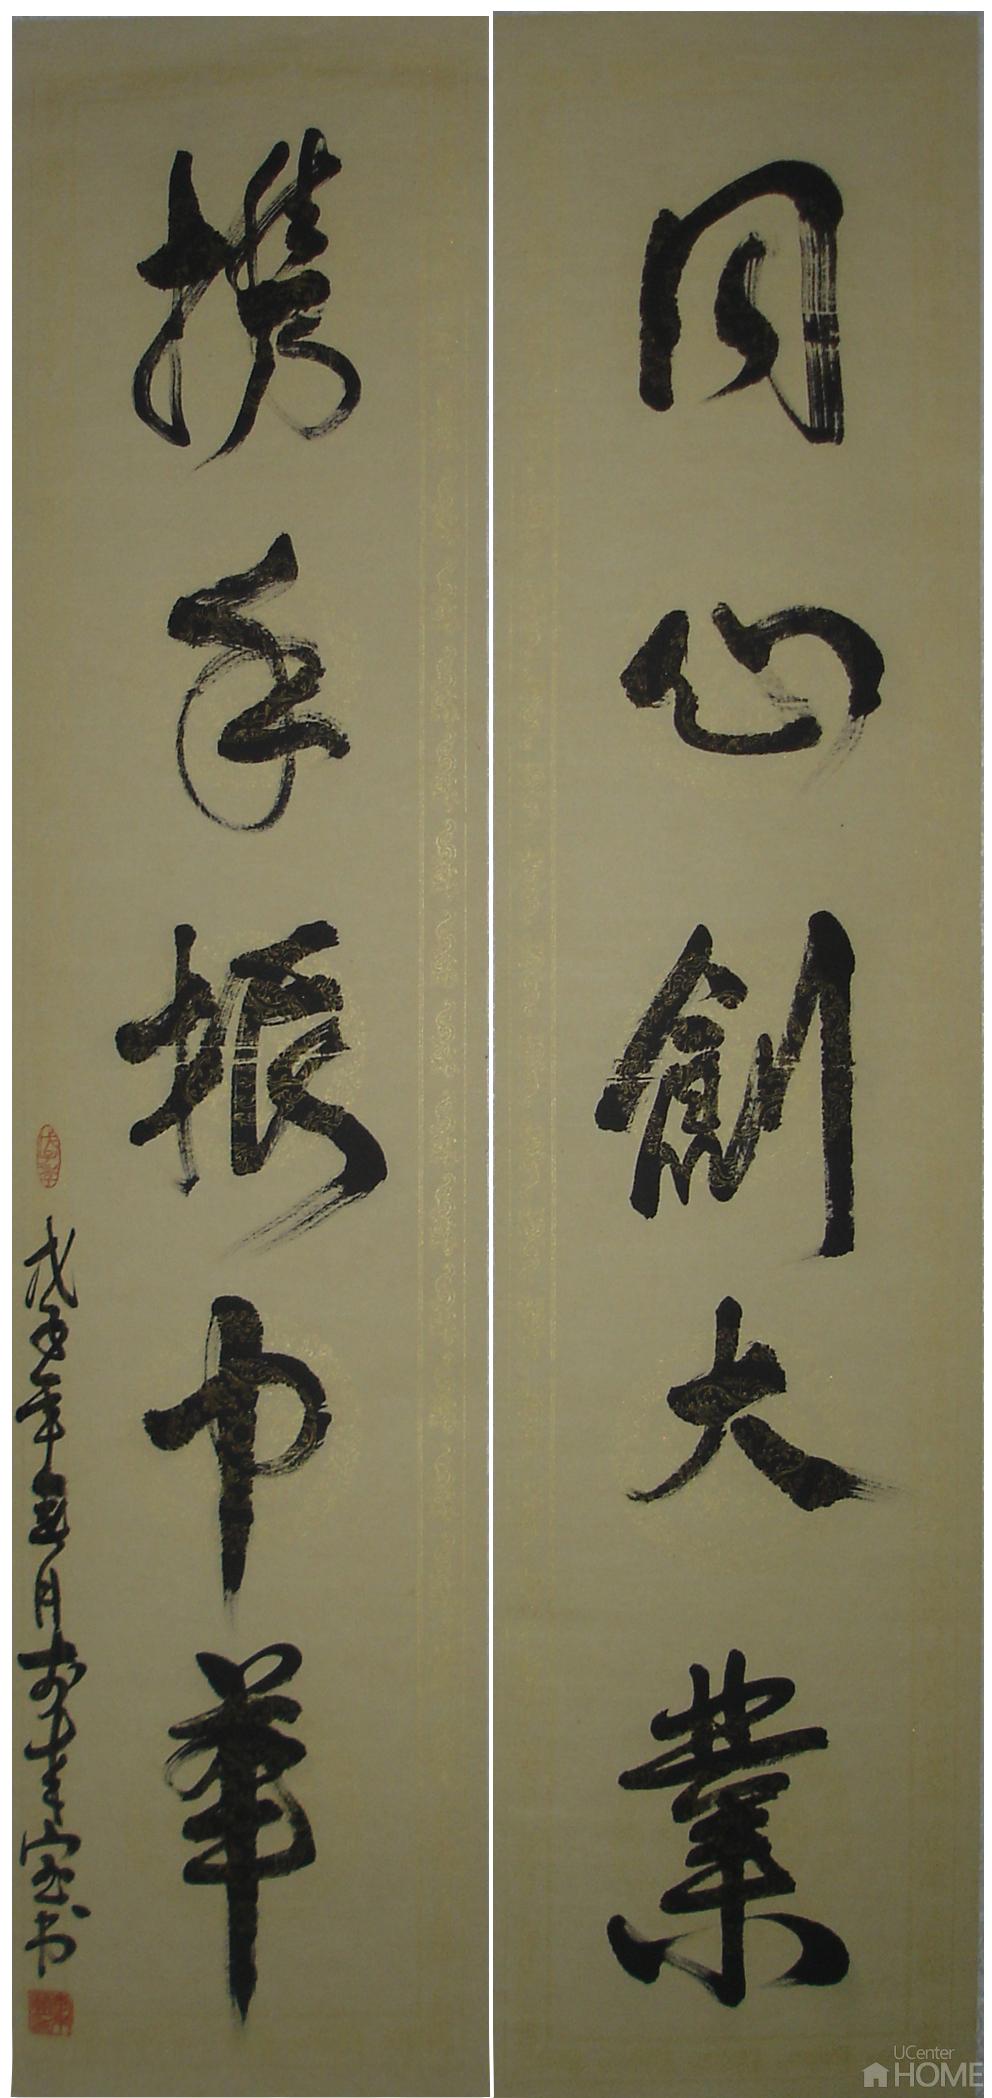 同心創大業
携手振中華
戊子年
月
书
UCenter
HOME